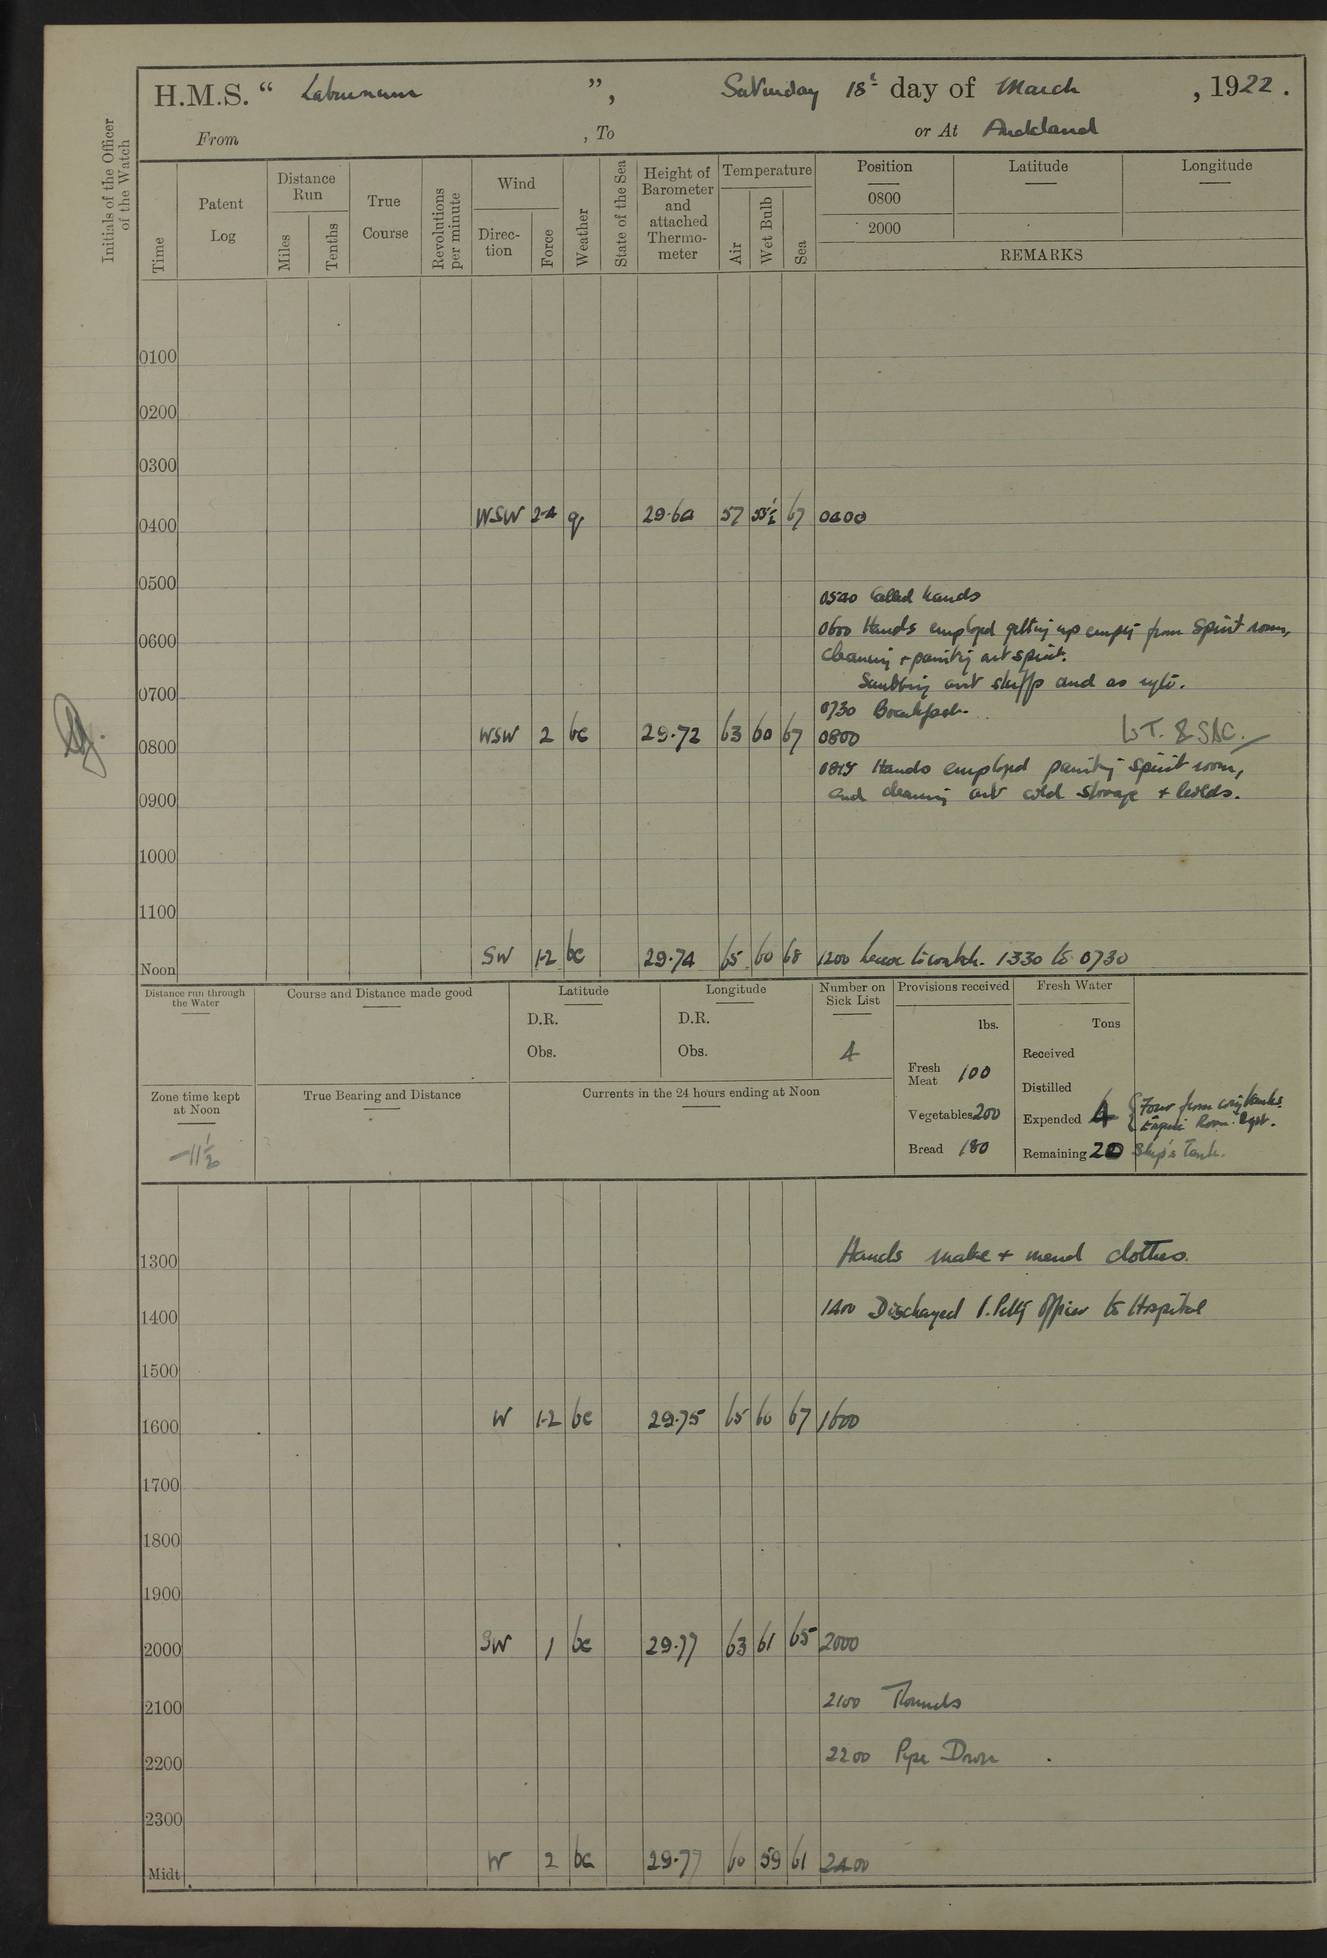 H.M.S. “ Laburnum ”, Saturday 18t day of March , 1922.
From , To or At Auckland
Initials of the Officer of the Watch
Time
Patent Log
Distance Run
Miles
Tenths
True Course
Revolutions per minute
Wind
Direction
Force
Weather
State of the Sea
Height of Barometer and attached Thermometer
Temperature
Air
Wet Bulb
Sea
Position Latitude Longitude
0800
2000
REMARKS
0100
0200
0300
0400 WSW 2-4 q 29.64 57 55½ 67 0400
0500
0540 Called hands
0600 Hands employed getting up empty from Spirit room,
0600
cleaning + painting out spirit.
Scrubbing out skiffs and as
0700
0730 Breakfast.
0800 WSW 2 bc 29.72 63 60 67 0800
0815 Hands employed painting spirit room,
and cleaning out cold storage + holds.
0900
1000
1100
Noon SW 1-2 bc 29.74 65 60 68 1200 Leave to watch. 1330 to 0730
Distance run through the Water
Course and Distance made good
Latitude
D.R.
Obs.
Longitude
D.R.
Obs.
Number on Sick List
4
Provisions received
lbs.
Fresh Meat 100
Vegetables 200
Bread 180
Fresh Water
Tons
Received
Distilled
Expended 4 Four from
Engine Room
Remaining 20 Ship's Tank.
Zone time kept at Noon
-11½
True Bearing and Distance
Currents in the 24 hours ending at Noon
Hands make + mend clothes.
1300
1400 Discharged 1. Petty Officer to Hospital
1400
1500
1600 W 1-2 bc 29.75 65 60 67 1600
1700
1800
1900
2000 SW 1 bc 29.77 63 61 65 2000
2100 Rounds
2100
2200 Pipe Down
2200
2300
Midt W 2 bc 29.77 60 59 61 2400